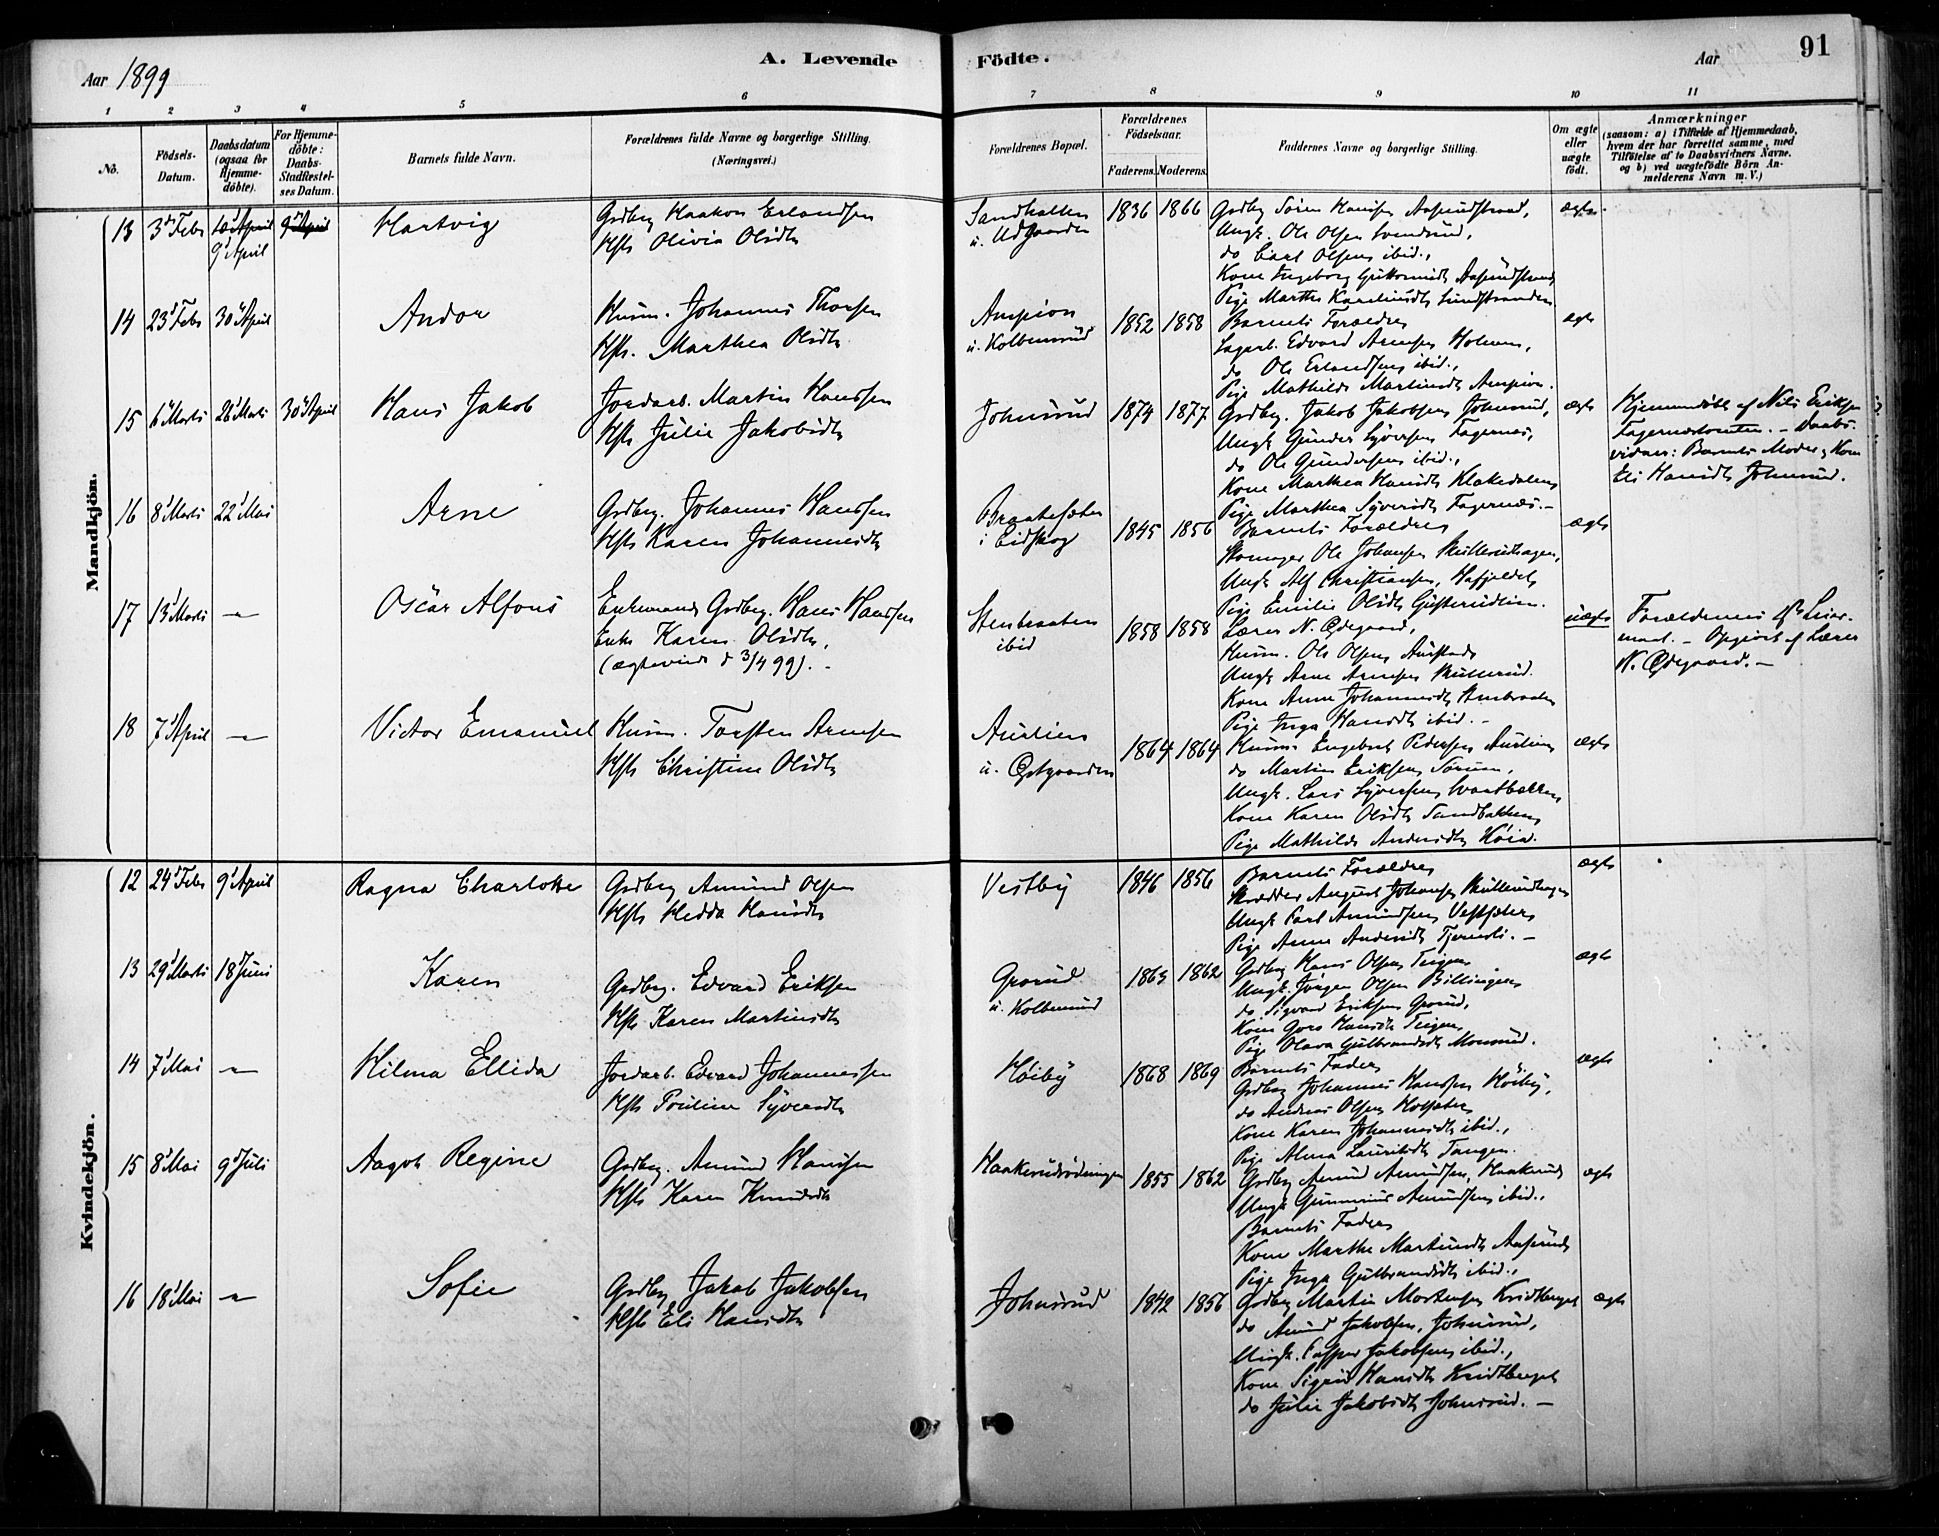 Aar 1899
A. Levende Födte.
Aar
91
1 2 3 4 5 6 7 8 9 10 11
No.
Födsels-Datum.
Daabsdatum (ogsaa for Hjemme-döbte).
For Hjemme-döbte: Daabs-Stadfæstel-ses Datum.
Barnets fulde Navn.
Forældrenes fulde Navne og borgerlige Stilling.
(Næringsvei.)
Forældrenes Bopæl.
Forældrenes Födselsaar.
Faderens. Moderens.
Faddernes Navne og borgerlige Stilling.
Om ægte eller uægte födt.
Anmærkninger
(saasom: a) i Tilfælde af Hjemmedaab, hvem der har forrettet samme, med Tilföielse af to Daabsvidners Navne. og b) ved uægtefödte Börn An-melderens Navn m. V.)
Mandkjön.
13 3d Febr 9d April Hartvig
Grdbrg Haakon Erlandsen
Hstr Olivia Olsdtr
Sandhatten
u. Udgaarden
1836 1866
Grdbrg Sören Hansen Aasrudstrand,
Ungk. Ole Olsen Svendsrud,
do Carl Olsen ibid.,
ægte
14 23d Febr 30d April Andor
Husm. Johannes Thorsen
Hstr. Marthea Olsdtr
u. Kolbensrud
1852 1858
Barnets Forældre
do Ole Erlandsen ibid.,
ægte
15 6d Marts 26d Marts 30d April Hans Jakob
Jordarb. Martin Hanssen
Hstr Julie Jakobsdtr
Johnsrud
1874 1877
Grdbrg. Jakob Jakobsen Johnsrud,
Ungk Gunder Syversen Fagernæs,
do Ole Gundersen ibid.,
Kone Marthea Hansdtr Klokkedalen
Pige Marthea Syversdtr Fagernæs.-
ægte
Hjemmedöbt af Nils Eriksen
Fagernæstomten. - Daabs-
vidner: Barnets Moder, Kone
Eli Hansdtr Johnsrud.
16 8d Marts 22d Mai Arne
Grdbrg. Johannes Hanssen
Hstr Karen Johannesdtr
Braatesæter
i Eidskog
1845 1856
Barnets Forældre
Ungk Alf Christiansen,
Pige Emilie Olsdtr
ægte
17 13d Marts - Oscar Alfons
Enkemand Grdbrg. Hans Hanssen
Enke Karen Olsdtr,
(ægteviede d 3/4 99). -
Stenbraaten
ibid
1858 1858
Lærer N. Ødegaard,
Husm. Ole Olsen
Ungk Arne Arnesen Skullerud.
Kone Anne Johannesdtr Stenbraaten
Pige Inga Hansdtr ibid. -
uægte
Forældrenes Leier-
maal. - Opgivet af Lærer
N. Ødegaard. -
18 7d April - Victor Emanuel
Husm. Torsten Arnesen
Hstr Christine Olsdtr
Austlien
u. Østgaarden
1864 1864
Husm. Engebret Pedersen Austlien
do Martin Eriksen Sorum,
Ungk. Lars Syversen Svartbækken
Kone Karen Olsdtr Sandbakken
Pige Mathilde Andersdtr Høia.
ægte
Kvindekjön.
12 24d Febr 9d April Ragna Charlotte
Grdbrg Amund Olsen
Hstr Hedda Hansdtr
Vestby
1846 1856
Barnets Forældre
Skrædder August Johansen Skullerudhagen
Ungk Carl Amundsen Vestsæter
Pige Anne Andersdtr Tjernsli. -
ægte
13 29d Marts 18d Juni Karen
Grdbrg. Edvard Eriksen
Hstr Karen Martinsdtr
Grorud
u. Kolbensrud
1863 1862
Grdbrg Hans Olsen Teigen
Ungk. Jörgen Olsen Billingen
do Sigvard Eriksen Grorud,
Kone Goro Hansdtr Teigen
Pige Olava Gulbrandsdtr Monsrud.
ægte
14 7d Mai - Hilma Ellida
Jordarb. Edvard Johannessen
Hstr Pauline Syversdtr
Høiby
1868 1869
Barnets Fader
Grdbrg Johannes Hanssen Höiby,
do Andreas Olsen Holsæter
Kone Karen Johannesdtr ibid.,
Pige Alma Lauritsdtr Tangen.
ægte
15 8d Mai 9d Juli Aagot Regine
Grdbrg. Amund Hansen
Hstr Karen Knudsdtr
Haakerudrödningen
1855 1862
Grdbrg Amund Amundsen, Haakerud
Ungk Gunnerius Amundsen ibid.,
Barnets Fader
Kone Marthe Martinsdtr Aasrud
Pige Inga Gulbrandsdtr ibid.,
ægte
16 18d Mai - Sofie
Grdbrg Jakob Jakobsen
Hstr Eli Hansdtr
Johnsrud
1842 1856
Grdbrg Martin Mortensen Kvidtberget
do Amund Jakobsen, Johnsrud,
Ungk. Casper Jakobsen ibid.,
Kone Sigrid Hansdtr Kvidtberget
do Julie Jakobsdtr Johnsrud. -
ægte